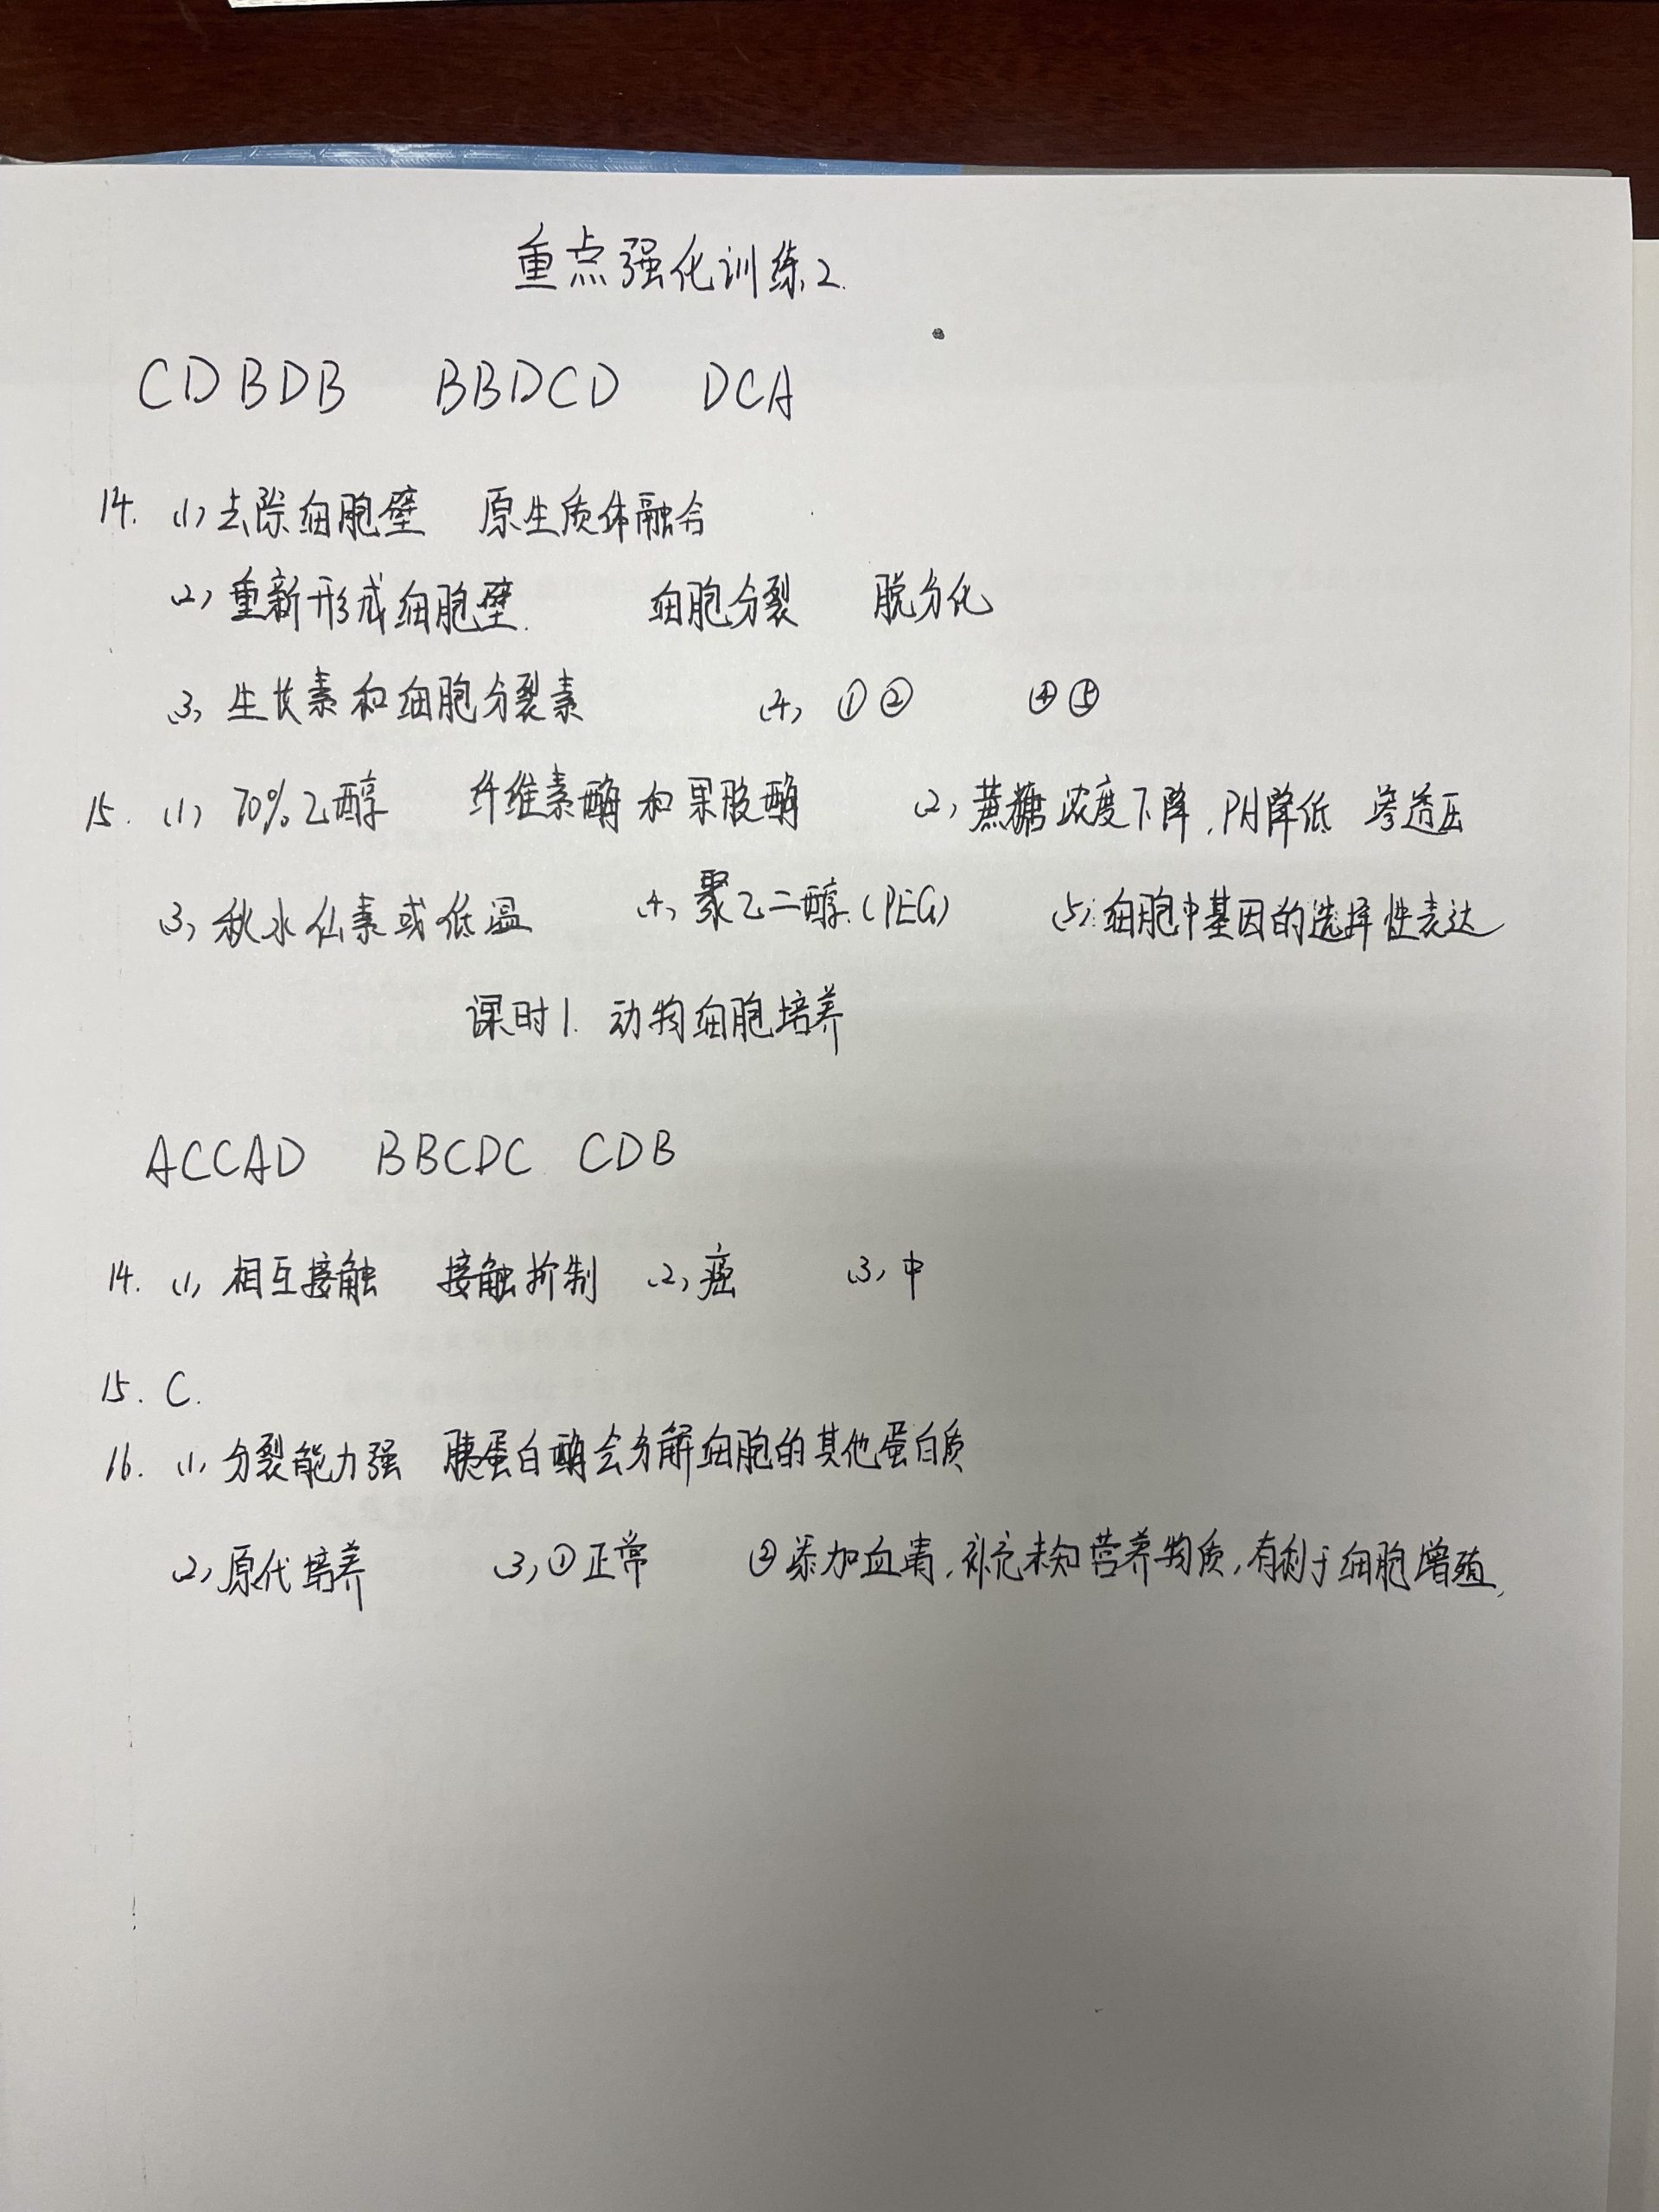 重点强化训练2.
CDBDB BBDCD DCA
14. (1) 去除细胞壁 原生质体融合
(2) 重新形成细胞壁. 细胞分裂 脱分化
(3) 生长素和细胞分裂素 (4) ①② ④⑤
15. (1) 70%乙醇 纤维素酶和果胶酶 (2) 蔗糖浓度下降, PH降低 渗透压
(3) 秋水仙素或低温 (4) 聚乙二醇.(PEG) (5) 细胞中基因的选择性表达
课时1. 动物细胞培养
ACCAD BBCDC CDB
14. (1) 相互接触 接触抑制 (2) 癌 (3) 中
15. C.
16. (1) 分裂能力强 胰蛋白酶会分解细胞的其他蛋白质
(2) 原代培养 (3) ①正常 ②添加血清, 补充未知营养物质, 有利于细胞增殖,